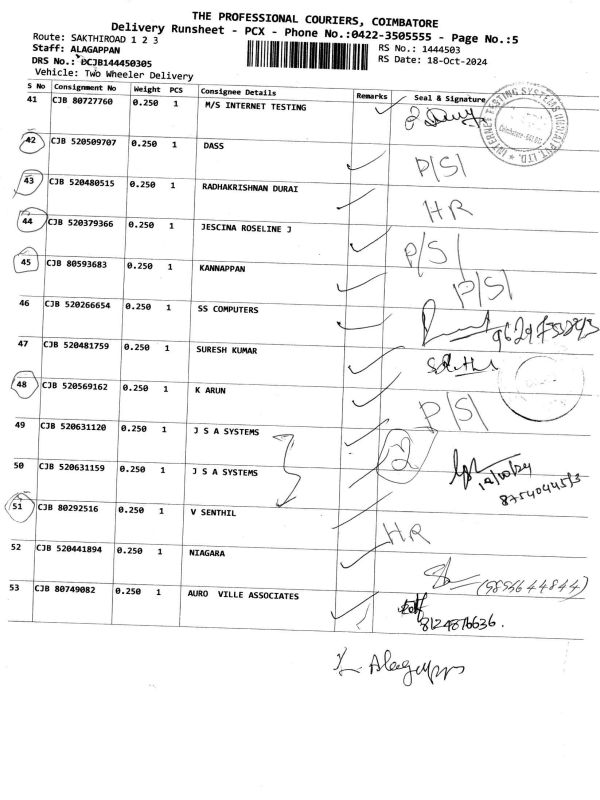 THE PROFESSIONAL COURIERS, COIMBATORE
Delivery Runsheet - PCX - Phone No.:0422-3505555 - Page No.:5
Route: SAKTHIROAD 1 2 3
RS No.: 1444503
Staff: ALAGAPPAN
RS Date: 18-Oct-2024
DRS No.: DCJB144450305
Vehicle: Two Wheeler Delivery
S No Consignment No Weight PCS Consignee Details Remarks Seal & Signature
41 CJB 80727760 0.250 1 M/S INTERNET TESTING
42 CJB 520509707 0.250 1 DASS P/S/
43 CJB 520480515 0.250 1 RADHAKRISHNAN DURAI HR
44 CJB 520379366 0.250 1 JESCINA ROSELINE J P/S/
45 CJB 80593683 0.250 1 KANNAPPAN P/S/
46 CJB 520266654 0.250 1 SS COMPUTERS
47 CJB 520481759 0.250 1 SURESH KUMAR
48 CJB 520569162 0.250 1 K ARUN P/S/
49 CJB 520631120 0.250 1 J S A SYSTEMS 2
50 CJB 520631159 0.250 1 J S A SYSTEMS
51 CJB 80292516 0.250 1 V SENTHIL HR
52 CJB 520441894 0.250 1 NIAGARA
53 CJB 80749082 0.250 1 AURO VILLE ASSOCIATES
8124876636.